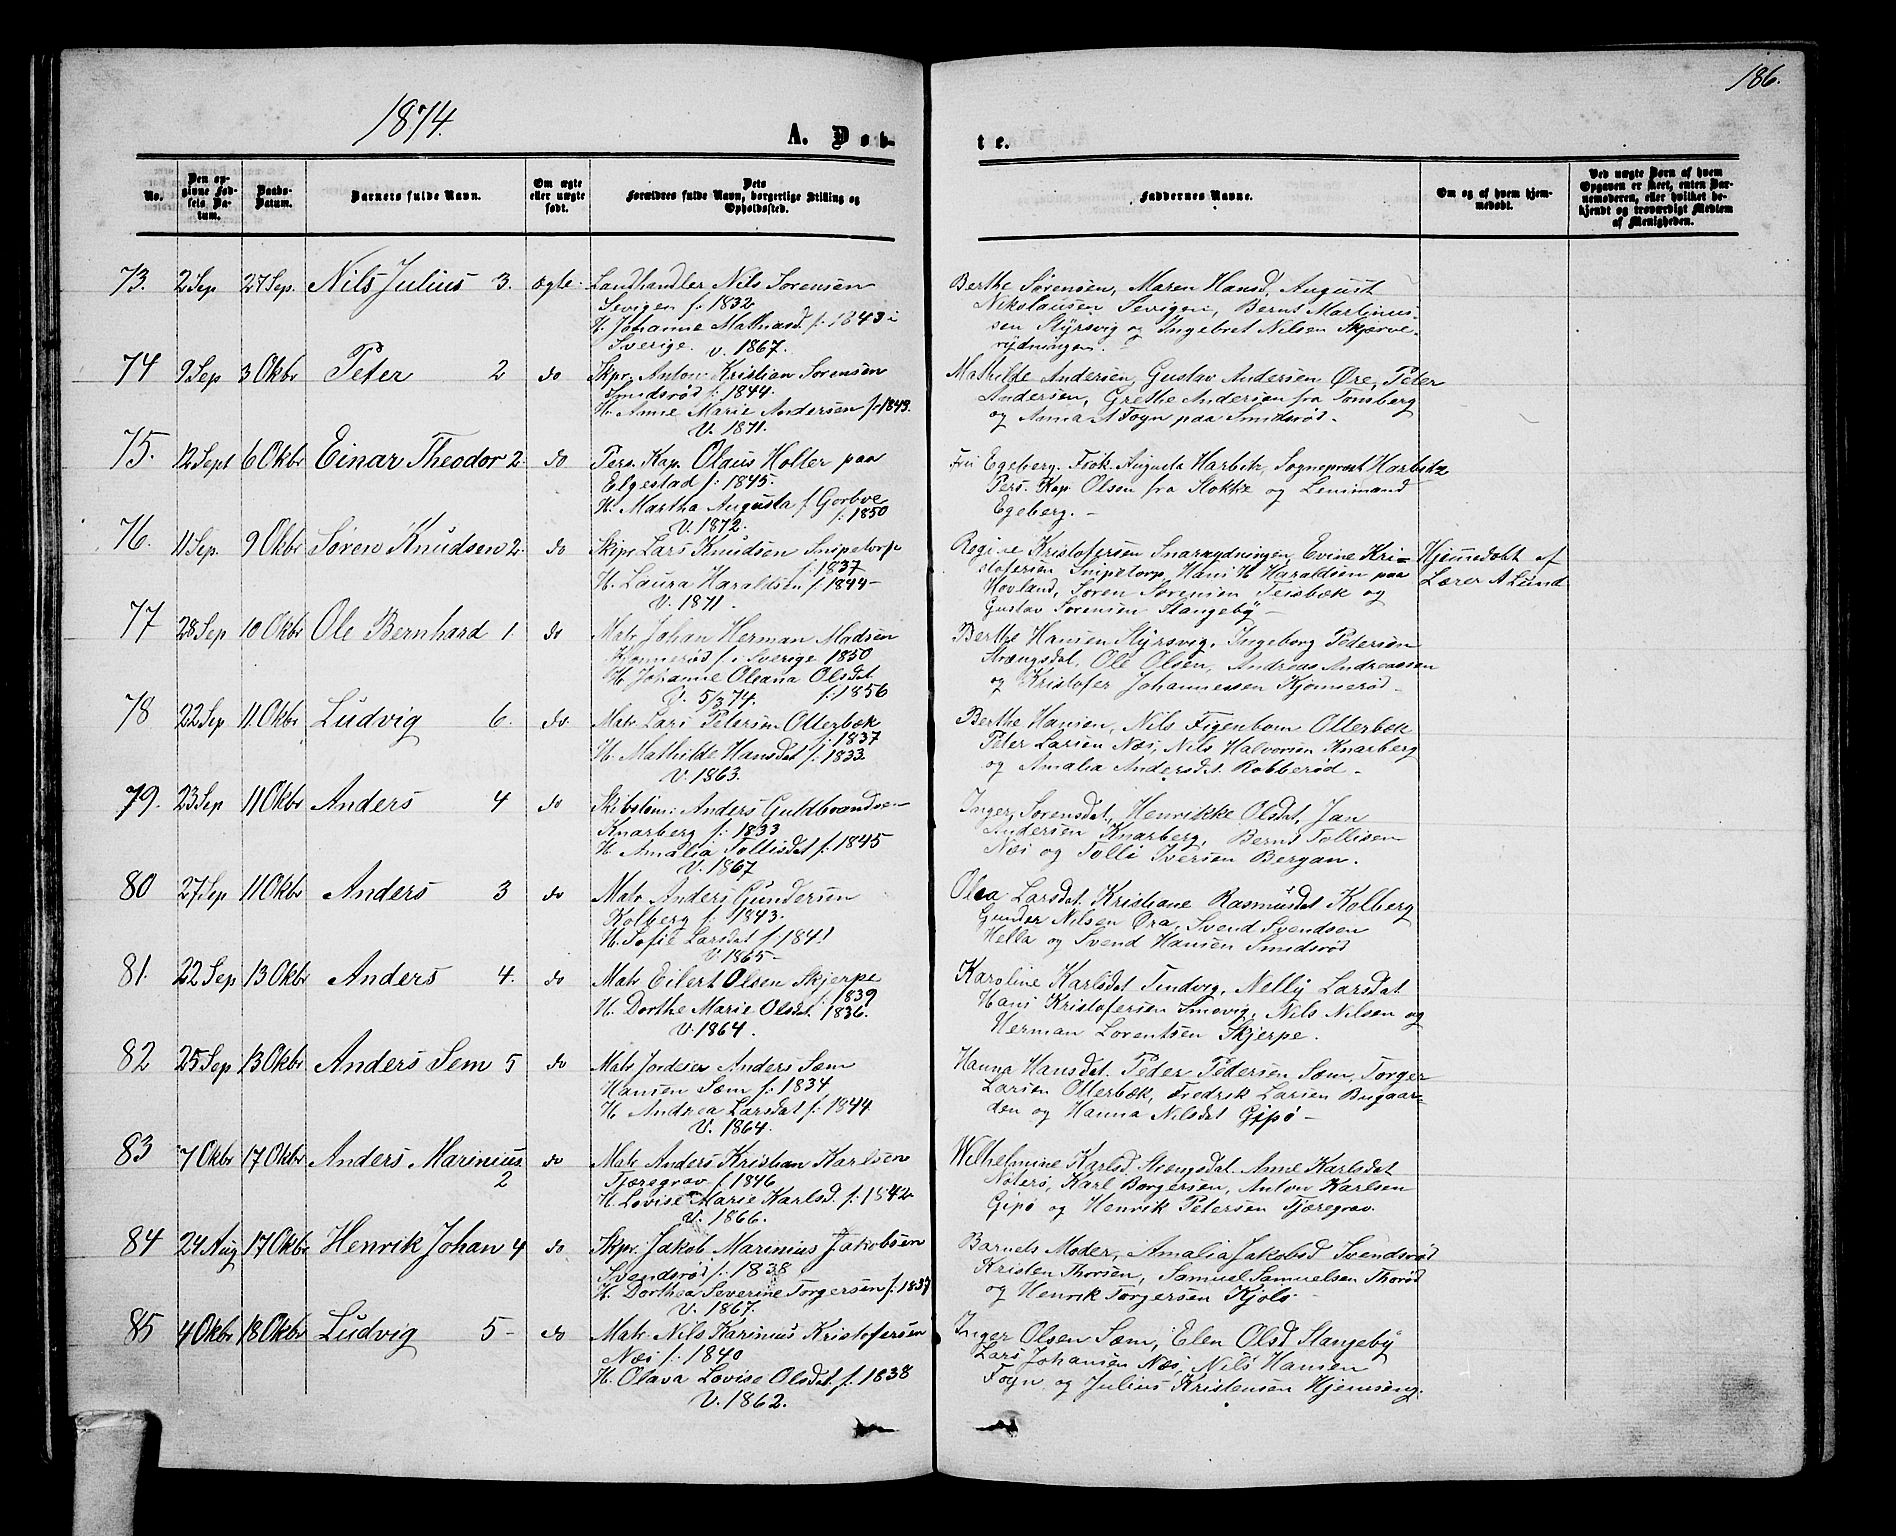 186.
1874.
A. Døb-
te.
No.
Den op-
givne Fød-
sels Da-
tum.
Daabs-
Datum.
Barnets fulde Navn.
Om ægte
eller uægte
født.
Dets
Forældres fulde Navn, borgerlige Stilling og
Opholdssted.
Faddernes Navne.
Om og af hvem hjem-
medøbt.
Ved uægte Børn af hvem
Opgaven er skeet, enten Bar-
nemoderen, eller hvilket be-
kjendt og troværdigt Medlem
af Menigheden.
73. 2 Sep 27 Sep. Nils Julius 3. ægte. Landhandler Nils Sørensen
Sevigen f. 1832
H. Johanne Mathiasd f. 1843 i
Sverige. v. 1867.
Berthe Sørensen, Maren Hansd, August
Nikolausen Sevigen, Bernt Martinius-
sen Styrsvig og Ingebret Nilsen Skjerve-
rydningen.
74 9 Sep 3 Okbr Peter 2 do Skpr. Anton Kristian Sørensen
Smidsrød f. 1844.
H. Anne Marie Andersen f. 1843.
V. 1871.
Mathilde Andersen, Gustav Andersen Øre, Peter
Andersen, Grethe Andersen fra Tønsberg
og Anna A Fogn paa Smidsrød.
75. 12 Sept 6 Okbr Einar Theodor 2. do Pers. Kap. Olaus Holter paa
Elgestad f. 1845.
H. Martha Augusta f. Gorbve
f. 1850
V. 1872.
Fru Egeberg. Frøk. Augusta Harbitz, Sogneprest Harbitz
Pers. Kap. Olsen fra Stokke og Lensmand
Egeberg. -
76. 11 Sep. 9 Okbr Søren Knudsen 2. do Skipr Lars Knudsen Snipetorp
f. 1837
H. Laura Haraldsen f. 1844 -
V. 1871.
Regine Kristofersen Snarrydningen, Evine Kri-
stofersen Snipetorp, Hans H Haraldsen paa
Hovland, Søren Sørensen Teisbæk og
Gustav Sørensen Stangeby -
Hjemmedøbt af
Lærer A Lund
77 28 Sep 10 Okbr Ole Bernhard 1. do Matr Johan Herman Madsen
Kjønnerød f. i Sverige 1850
H. Johanne Olsana Olsdat
V. 5/3 74. f. 1856
Berthe Hansen Styrsvig, Ingeborg Pedersen
Strengsdal, Ole Olsen, Andreas Andreassen
og Kristofer Johannessen Kjønnerød -
78 22 Sep 11 Okbr Ludvig 6. do. Matr Lars Petersen Otterbæk
f. 1837
H. Mathilde Hansdat f. 1833.
V. 1863.
Berthe Hansen, Nils Figenbom Otterbæk
Peter Larsen Næs, Nils Halvorsen Knarberg
og Amalia Andersdt. Robberød -
79. 23 Sep 11 Okbr Anders 4 do Skibstøm: Anders Guldbrandse-
Knarberg f. 1833
H. Amalia Tollisdat f. 1845
V. 1867
Inger Sørensdat, Henrikke Olsdat, Jan
Andersen Knarberg, Bernt Tollisen
Næs og Tolli Iversen Bergan.
80 27 Sep 11 Okbr Anders 3 do Matr Anders Gundersen
Kolberg f. 1843.
H. Sofie Larsdat f. 1841
V. 1865 -
Olea Larsdat. Kristiane Rasmusdat Kolberg
Gunder Nilsen Øra, Svend Svendsen
Hella og Svend Hansen Smidsrød
81. 22 Sep 13 Okbr Anders 4. do Matr Eilert Olsen Skjerpe
f. 1839
H. Dorthe Marie Olsdat. 1836.
V. 1864.
Karoline Karlsdat Tindvig, Nelly Larsdat
Hans Kristofersen Smovig, Nils Nilsen og
Herman Lorentsen Skjerpe.
82 25 Sep 13 Okbr Anders Sem 5 do Matr Jordeier Anders Sæm
Hansen Sæm f. 1834
H. Andrea Larsdat f. 1844
V. 1864.
Hanna Hansdat. Peder Pedersen Sæm, Torger
Larsen Otterbæk, Fredrik Larsen Bugaar-
den og Hanna Nilsdat Gipø -
83 7 Okbr 17 Okbr Anders Marinius
2 do Matr Anders Kristian Karlsen
Tjæregrav f. 1846
H. Lovise Marie Karlsd. f. 1842
V. 1866.
Wilhelmine Karlsd. Strengsdal. Anne Karlsdat
Nøterø, Karl Borgersen, Anton Karlsen
Gipø og Henrik Petersen Tjæregrav.
84 24 Aug 17 Okbr Henrik Johan 4 do Skpr. Jakob Marinius Jakobsen
Svendsrød f. 1838
H. Dorthea Severine Torgersen f. 1837
V. 1867.
Barnets Moder, Amalia Jakobsd Svendsrød
Kristen Thorsen, Samuel Samuelsen Thorød
og Henrik Torgersen Kjølø -
85 4 Okbr 18 Okbr Ludvig 5 - do Matr Nils Karinius Kristofersen
Næs f. 1840
H. Olava Lovise Olsdat. f. 1838
V. 1862.
Inger Olsen Sæm, Elen Olsd Stangeby
Lars Johansen Næs, Nils Hansen
Fogn og Julius Kristensen Hjemseng.